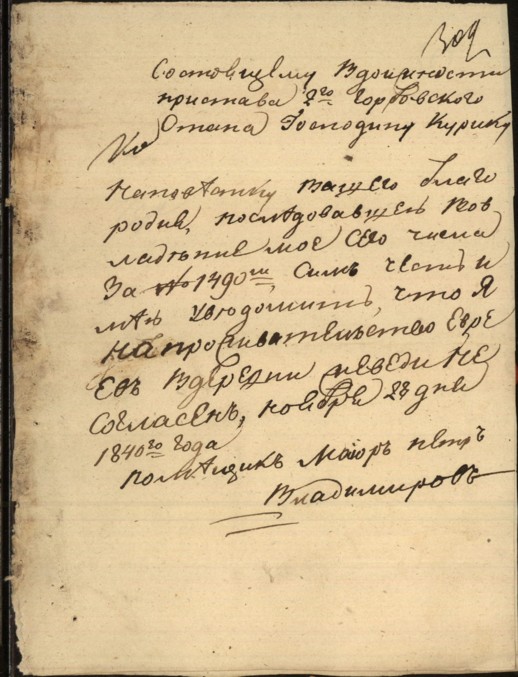 Состоящему Вдолжности
пристава 2го Горбовского
Стана Господину Курику
На повѣстку вашего благо
родия, последовавшею Повла
дѣние мое Сего числа
За № 1490м, Симъ честь и
мѣю Уведомить, что Я
На проживательство Евре
евъ Вдеревни Неведи Не
Согласенъ, ноября 28 дня
1840го года
помѣщикъ Маіоръ петръ
Владимировъ